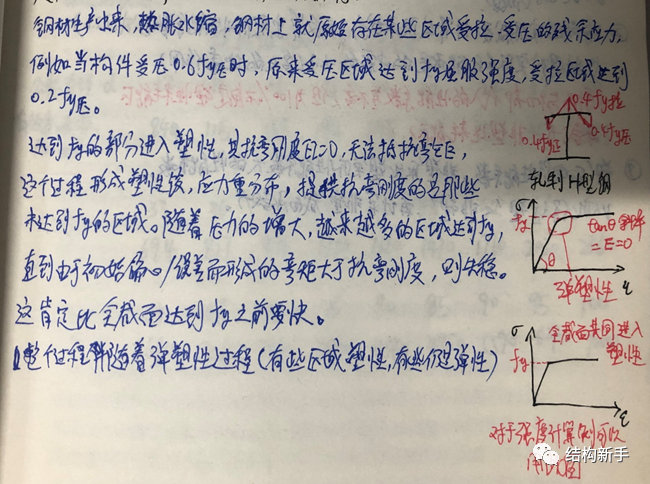 钢材生产出来，热胀冷缩，钢材上就原始存在某些区域受拉、受压的残余应力，
例如当构件受压0.6fy压时，原来受压区域达到fy屈服强度，受拉区域达到
0.2fy压。
达到fy的部分进入塑性，其抗弯刚度EI=0，无法抵抗弯矩，
这个过程形成塑性铰，应力重分布，提供抗弯刚度的是那些
未达到fy的区域。随着应力的增大，越来越多的区域达到fy，
直到由于初始偏心/误差而形成的弯矩大于抗弯刚度，则失稳。
这肯定比全截面达到fy之前要快。
整个过程伴随着弹塑性过程（有些区域塑性，有些仍是弹性）
0.4fy拉
0.4fy压
0.4fy压
轧制H型钢
σ
fy
tanθ斜率
=E=0
θ
ε
弹塑性
σ
全截面共同进入
塑性
fy
ε
对于强度计算则可以
用此图
结构新手